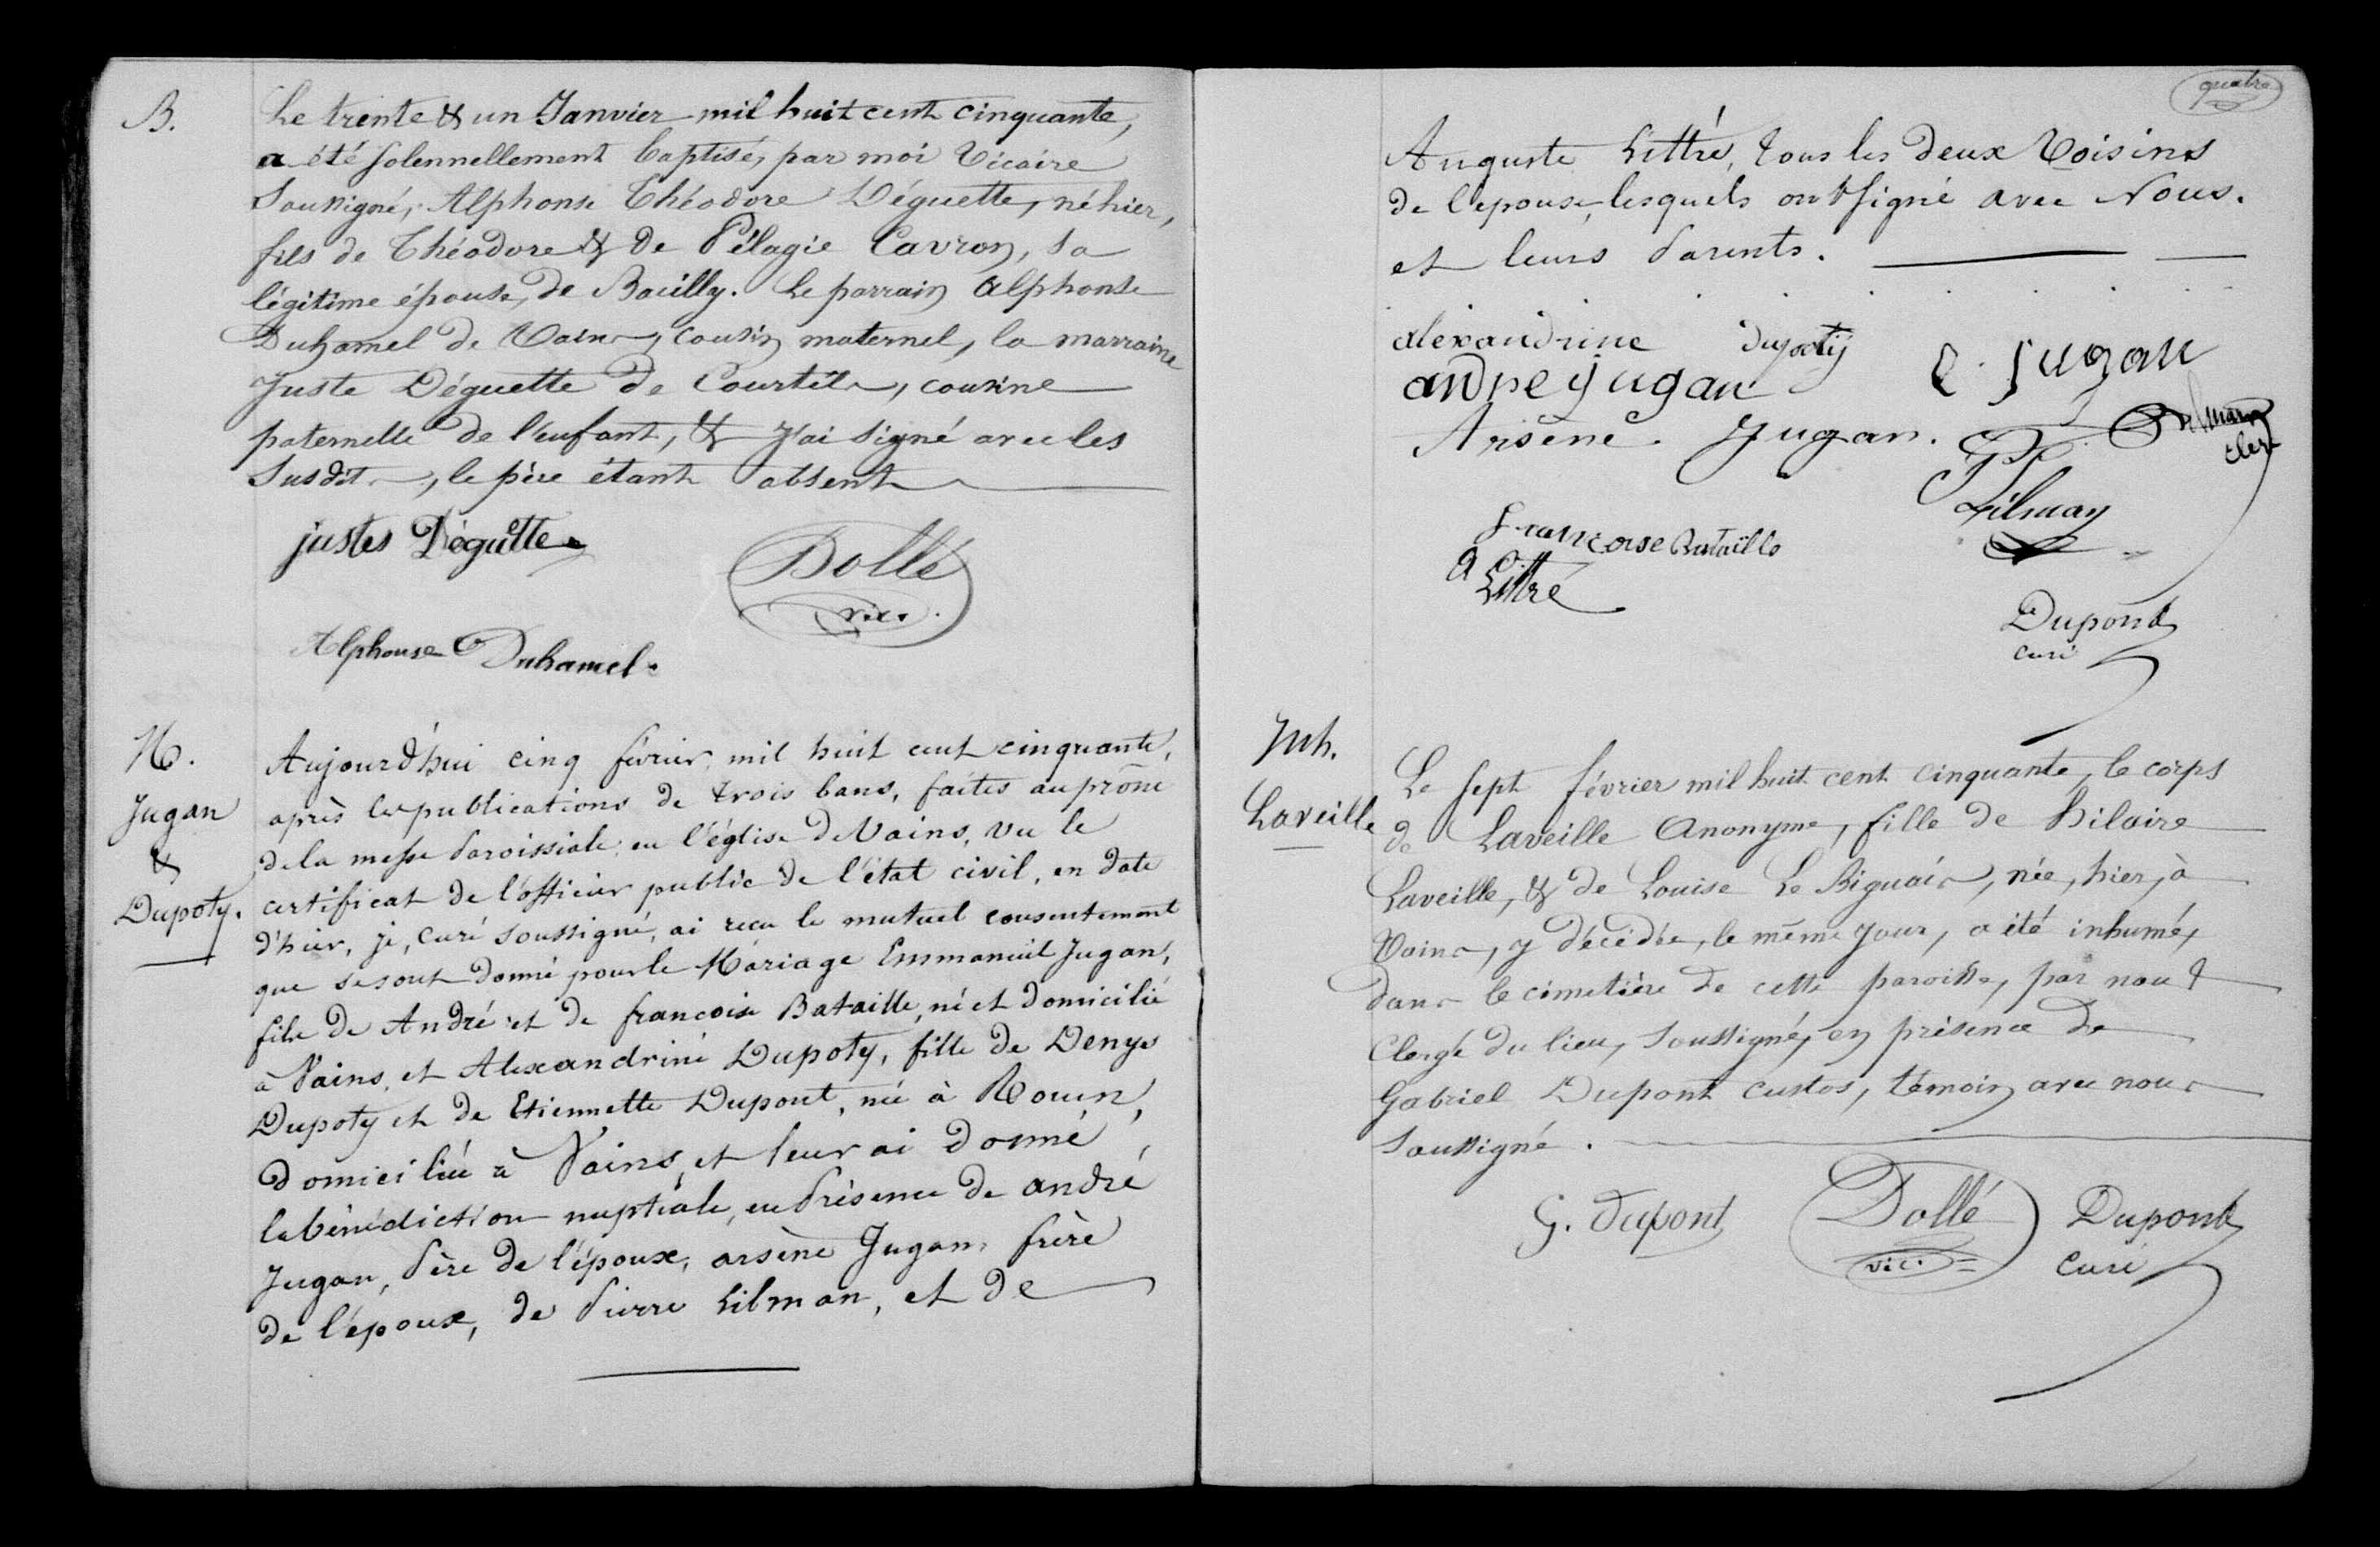 B.
Le trente & un Janvier mil huit cent cinquante,
a été solennellement baptisé, par moi Vicaire
Soussigné, Alphonse Théodore Déguette, né hier,
fils de Théodore & de Pélagie Cavron, sa
légitime épouse, de Bacilly. Le parrain Alphonse
Duhamel de Vains, cousin maternel, la marraine
Juste Déguette de Courtils, cousine
paternelle de l'enfant, & J'ai signé avec les
Susdits, le père étant absent
justes Déguette
Dollé
vic.
Alphonse Duhamel.
M.
Jugan
&
Dupoty.
Aujourd'hui cinq février mil huit cent cinquante,
après les publications de trois bans, faites au prône
de la messe Paroissiale en l'église de Vains, Vu le
certificat de l'officier public de l'état civil, en date
d'hier, je, curé soussigné, ai reçu le mutuel consentement
que se sont donné pour le Mariage Emmanuel Jugan,
fils de André et de françoise Bataille, né et domicilié
à Vains, et Alexandrine Dupoty, fille de Denys
Dupoty et de Etiennette Dupont, née à Rouen,
domiciliée à Vains, et leur ai donné
la bénédiction nuptiale, en Présence de andré
Jugan, Père de l'époux, arsène Jugan, frère
de l'époux, de Pierre Lilman, et de
quatre
Auguste Littré, tous les deux Voisins
de l'epouse, lesquels ont signé avec Nous.
et leurs Parents.
alexandrine Dupoty
E. jugan
andre jugan
Arsène. Jugan.
clerc
P. Lilman
francoise Bataille
A Littré
Dupont
curé
Inh.
Laveille
Le sept février mil huit cent cinquante, le corps
de Laveille Anonyme, fille de hilaire
Laveille, & de Louise Le Biguais, née, hier, à
Vains, y décédée, le même jour, a été inhumé,
dans le cimetière de cette paroisse, par nous
Clergé du lieu, Soussigné, en présence de
Gabriel Dupont custos, témoin avec nous
Soussigné.
G. Dupont
Dollé
vic.
Dupont
Curé